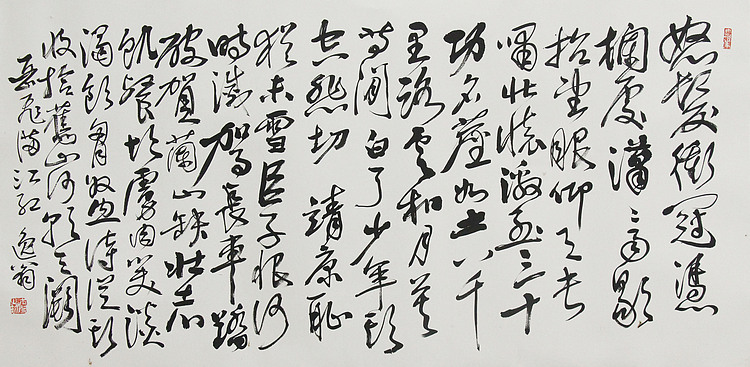 怒髮衝冠憑
欄處瀟〻雨歇
抬望眼仰天長
嘯壯懷激烈三十
功名塵如土八千
里路雲和月莫
等閒白了少年頭
空悲切 靖康恥
猶未雪臣子恨何
時滅 駕長車踏
破賀蘭山缺壯志
飢餐胡虜肉笑談
渴飲匈奴血待從頭
收拾舊山河朝天闕
岳飛滿江紅 逸翁